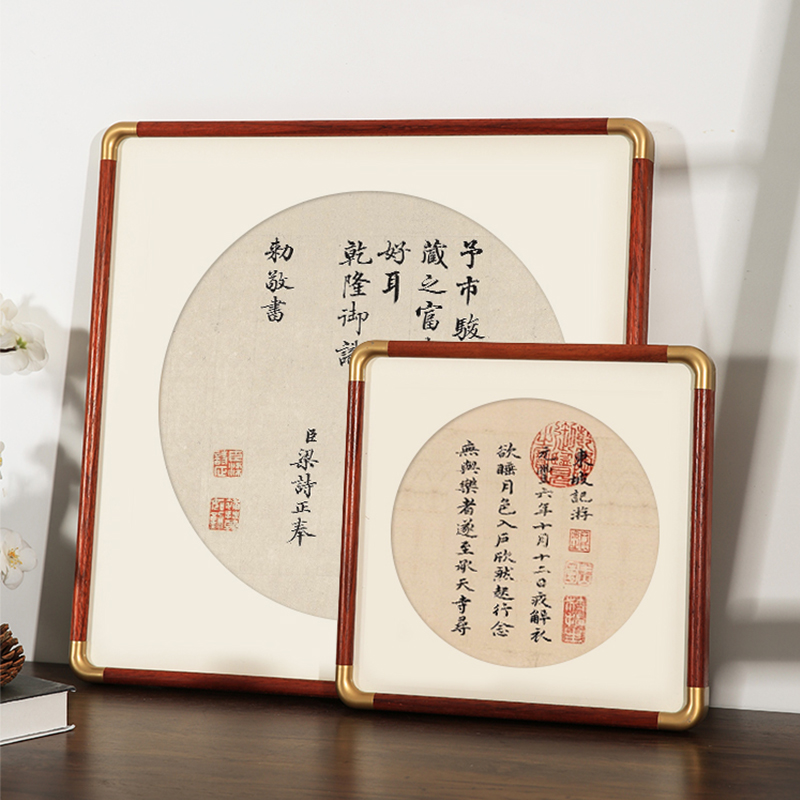 予市駿
藏之富
好耳
乾隆御
勅敬書
臣梁詩正奉
東坡記游
元豐六年十月十二日夜解衣
欲睡月色入戶欣然起行念
無與樂者遂至承天寺尋